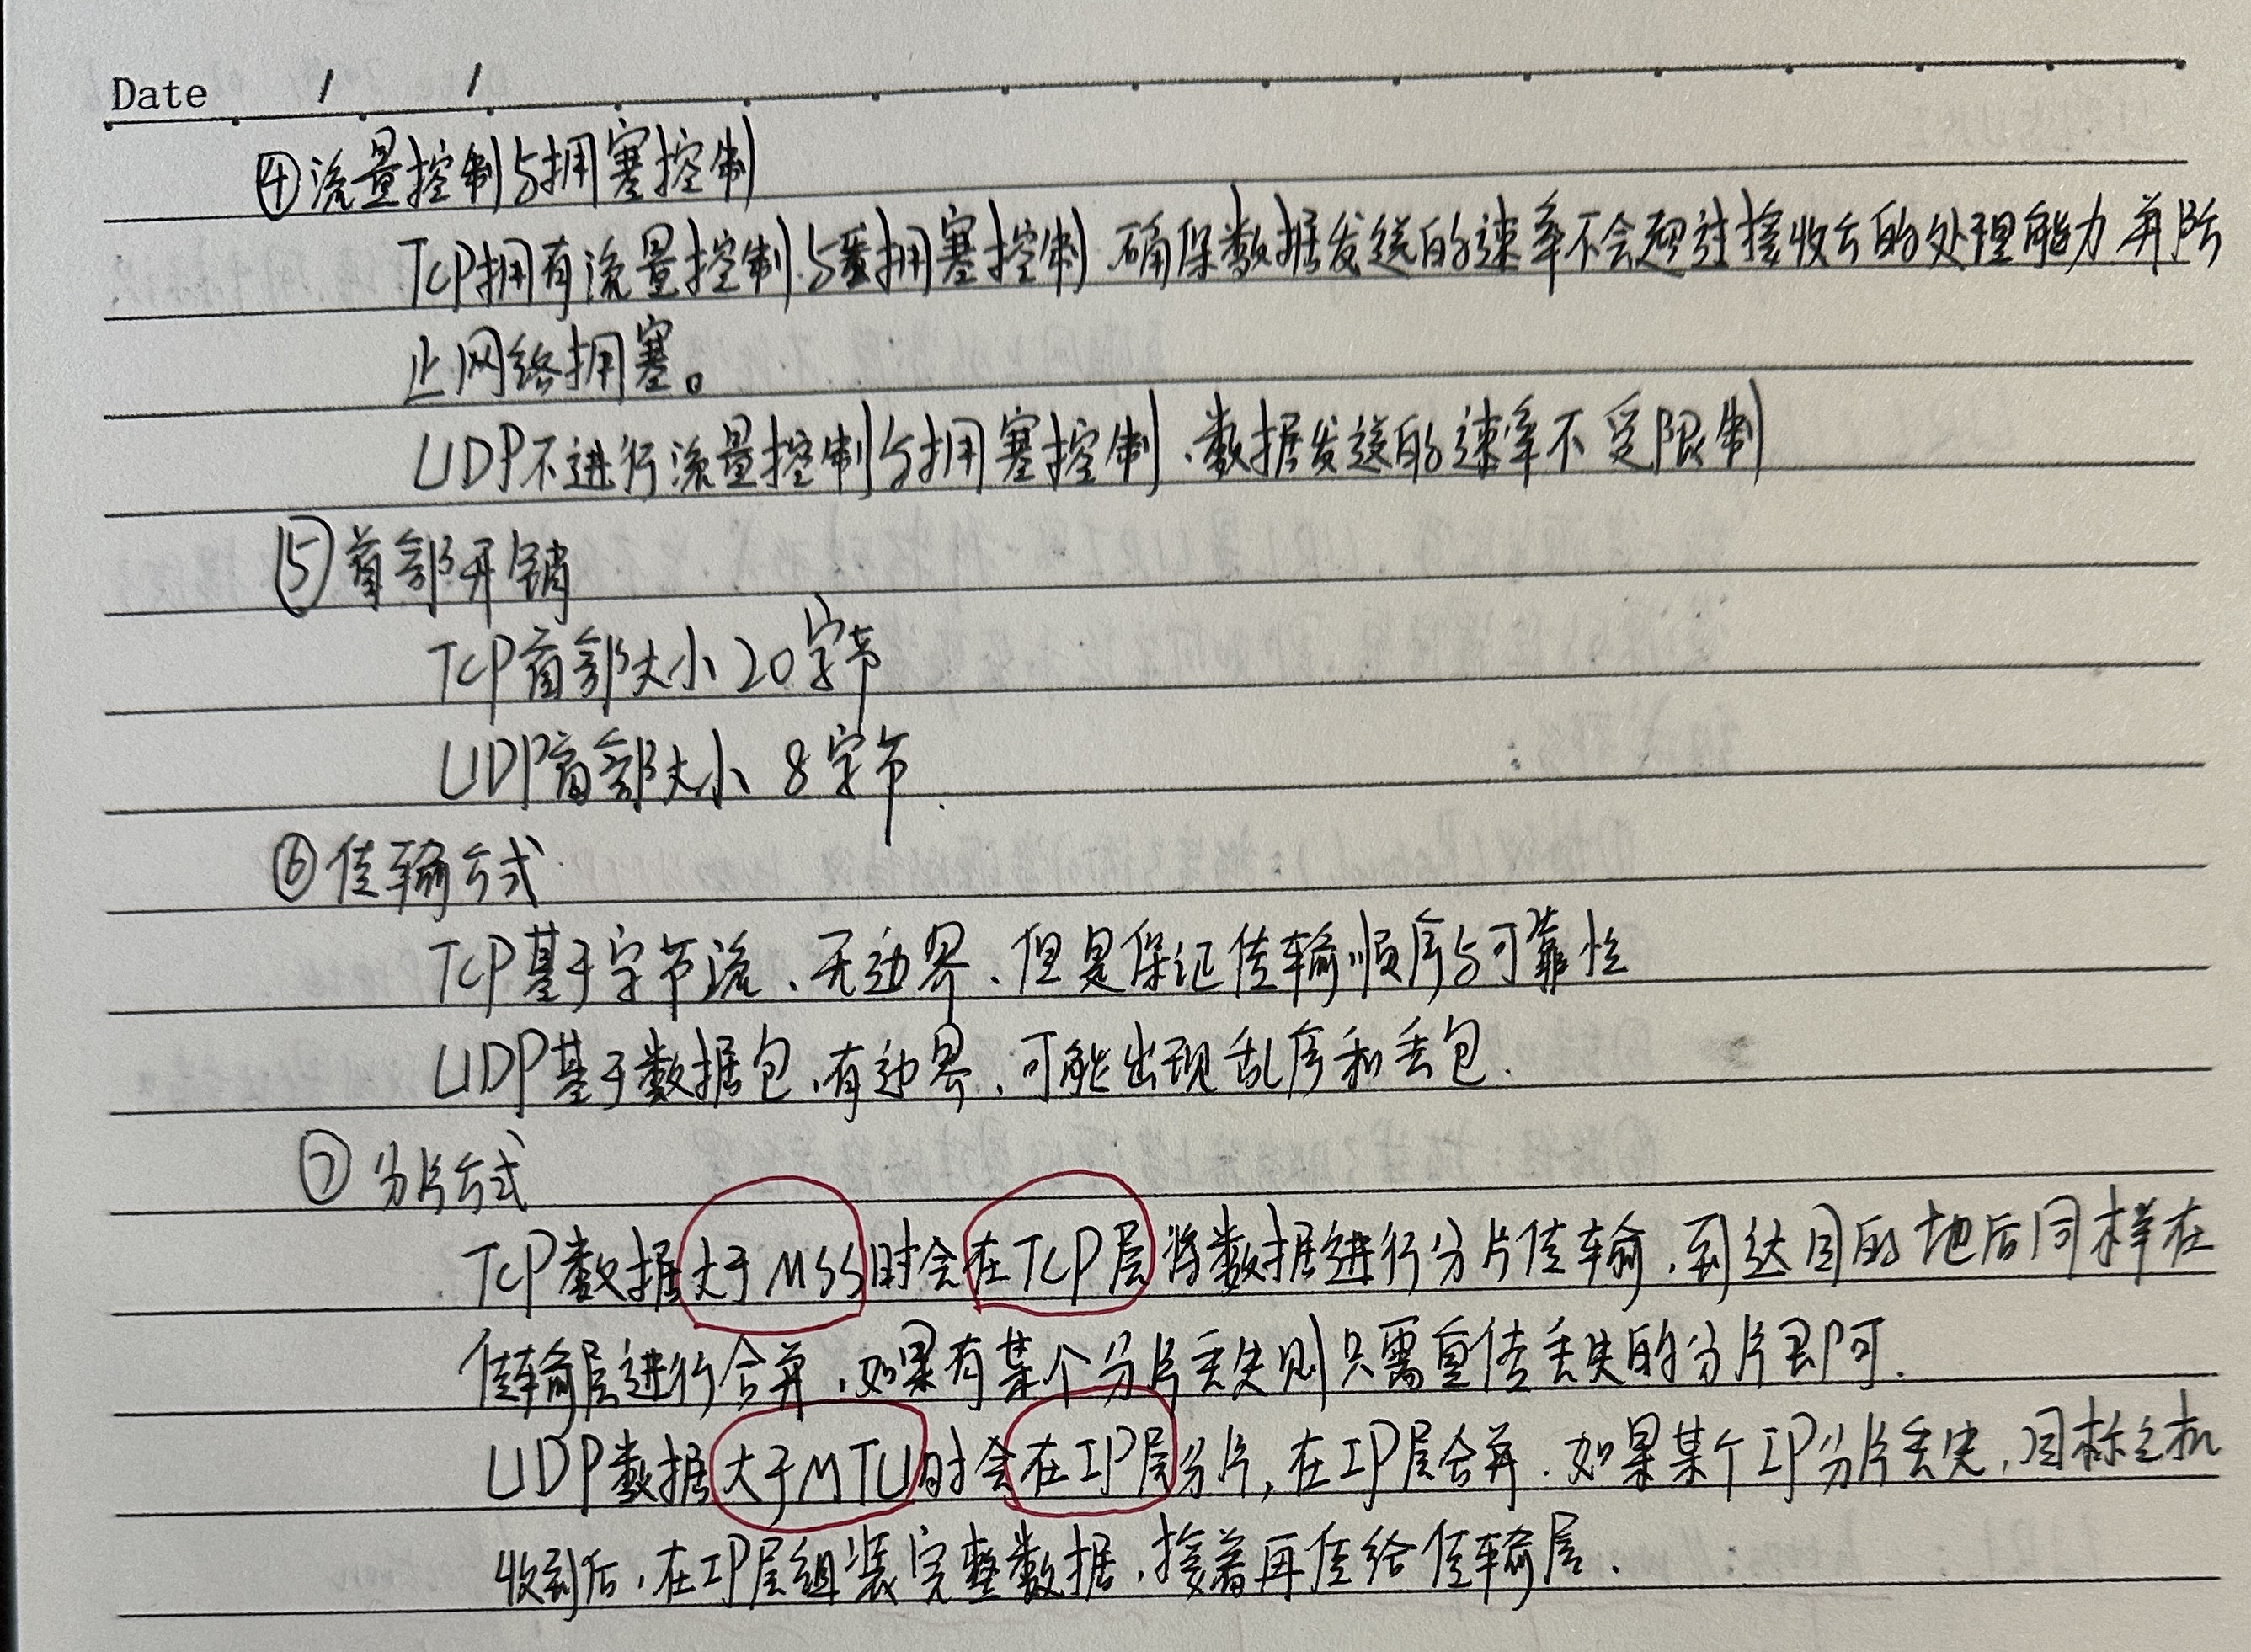 Date / /
④流量控制与拥塞控制
TCP拥有流量控制与拥塞控制、确保数据发送的速率不会超过接收方的处理能力并防
止网络拥塞。
UDP不进行流量控制与拥塞控制、数据发送的速率不受限制
⑤首部开销
TCP首部大小20字节
UDP首部大小 8字节.
⑥传输方式
TCP基于字节流、无边界、但是保证传输顺序与可靠性
UDP基于数据包、有边界、可能出现乱序和丢包.
⑦分片方式
TCP数据大于MSS时会在TCP层将数据进行分片传输、到达目的地后同样在
传输层进行合并、如果有某个分片丢失则只需重传丢失的分片即可.
UDP数据大于MTU时会在IP层分片,在IP层合并.如果某个IP分片丢失,目标主机
收到后、在IP层组装完整数据、接着再传给传输层.